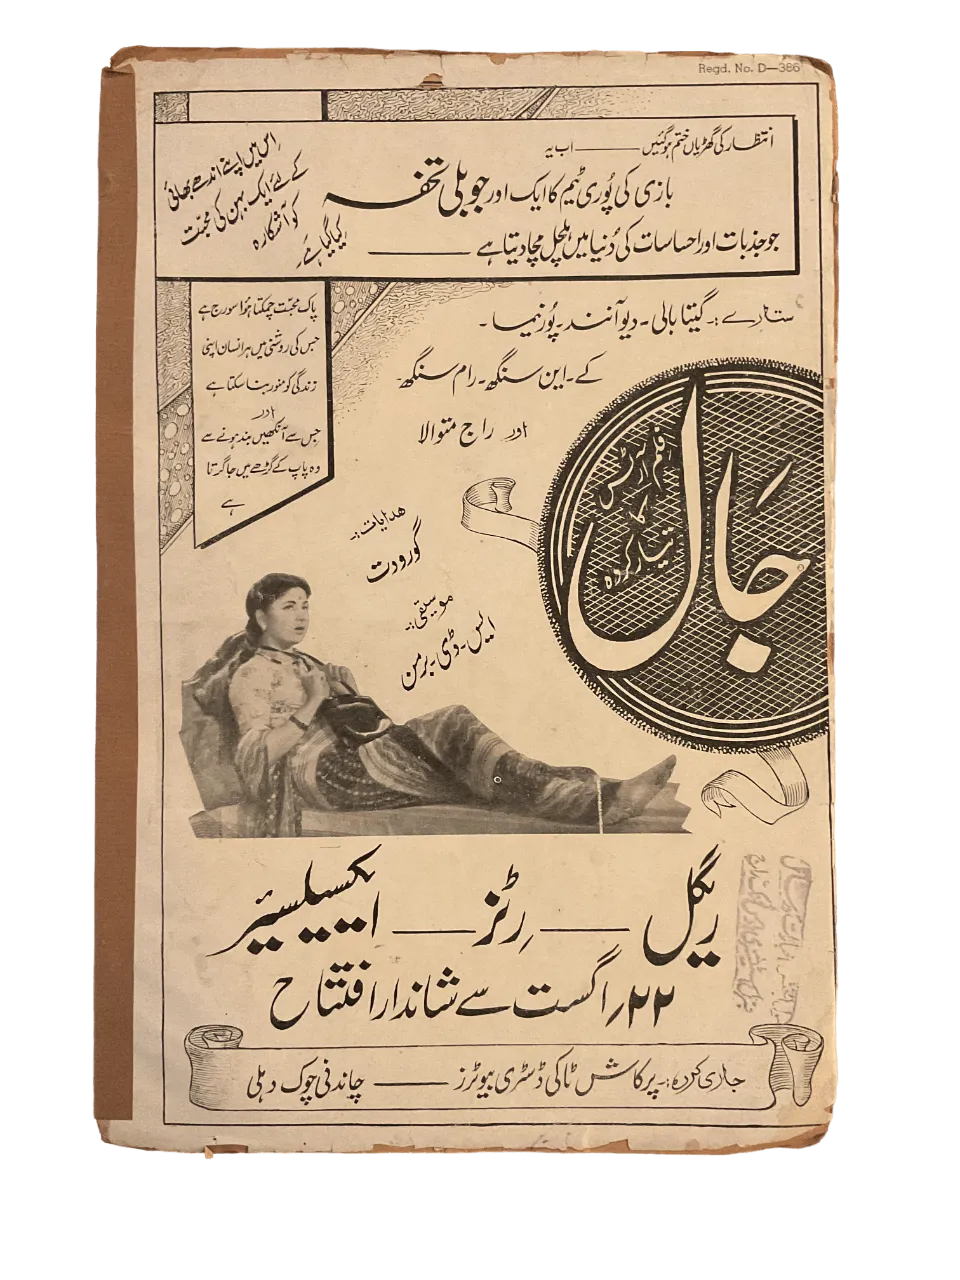 Regd. No. D—386
انتظار کی گھڑیاں ختم ہوگئیں —— اب یہ
بازی کی پُوری ٹیم کا ایک اور جوبلی تحفہ
جو جذبات اور احساسات کی دُنیا میں ہلچل مچا دیتا ہے ——
اِس میں اپنے اندھے بھائی
کے لئے ایک بہن کی محبت
کو آشکارہ
کیا گیا ہے
پاک محبّت چمکتا ہُوا سورج ہے
جس کی روشنی میں ہر انسان اپنی
زندگی کو منور بنا سکتا ہے
اور
جس سے آنکھیں بند ہونے سے
وہ پاپ کے گڑھے میں جا گرتا
ہے
ستارے:۔ گیتا بالی۔ دیو آنند۔ پُورنیما۔
کے۔ این سنگھ۔ رام سنگھ
اور راج متوالا
فلم آرٹس
کا
تیار کردہ
جال
ھدایات:۔
گورودت
موسیقی:۔
ایس۔ ڈی۔ برمن
ریگل —— رِٹز —— ایکسیلسیئر
۲۲؍ اگست سے شاندار افتتاح
جاری کردہ:۔ پرکاش ٹاکی ڈسٹری بیوٹرز —— چاندنی چوک دہلی